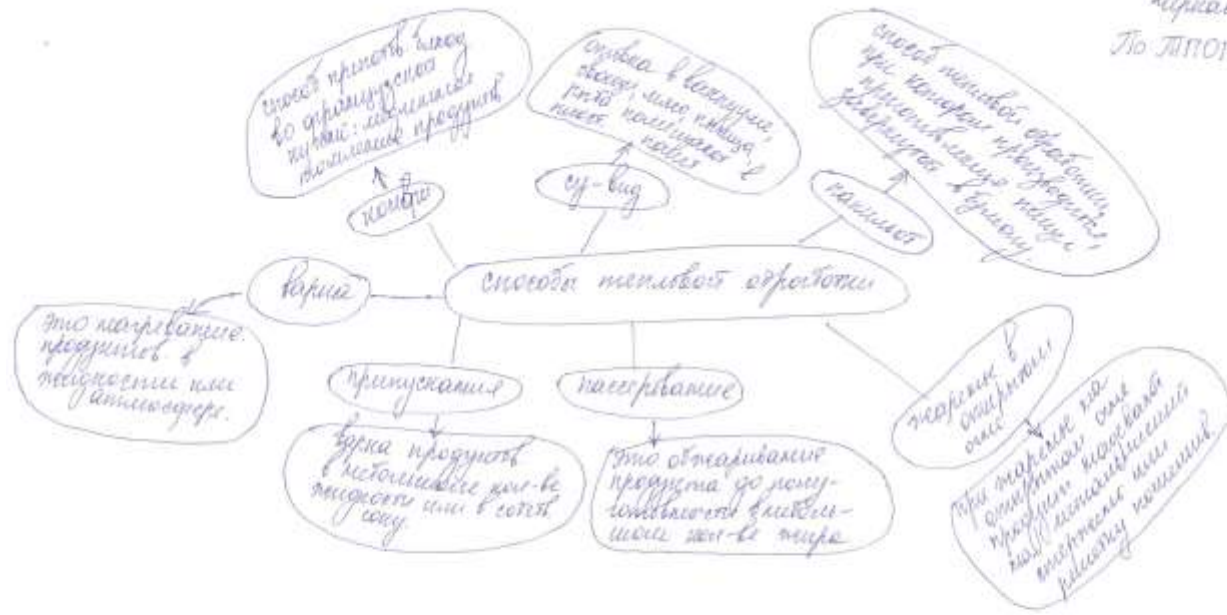 По ТПОП
способ приготв блюд
во французской
кухне: медленное
томление продуктов
конфи
в вакууме,
овощи, мясо, птица,
помещают в
пакет
су-вид
способ тепловой обработки,
при котором производится,
пищи
завернутой в бумагу.
папильот
способы тепловой обработки
варка
Это нагревание
продуктов в
жидкости или
атмосфере.
припускания
варка продуктов
в небольшом кол-ве
жидкости или в собств
соку.
пассерование
Это обжаривание
продукта до полу-
готовности в неболь-
шом кол-ве жира
жаренье в
открытом
огне
при жаренье на
открытом огне
продукт
на металлический
стержень или
решетку